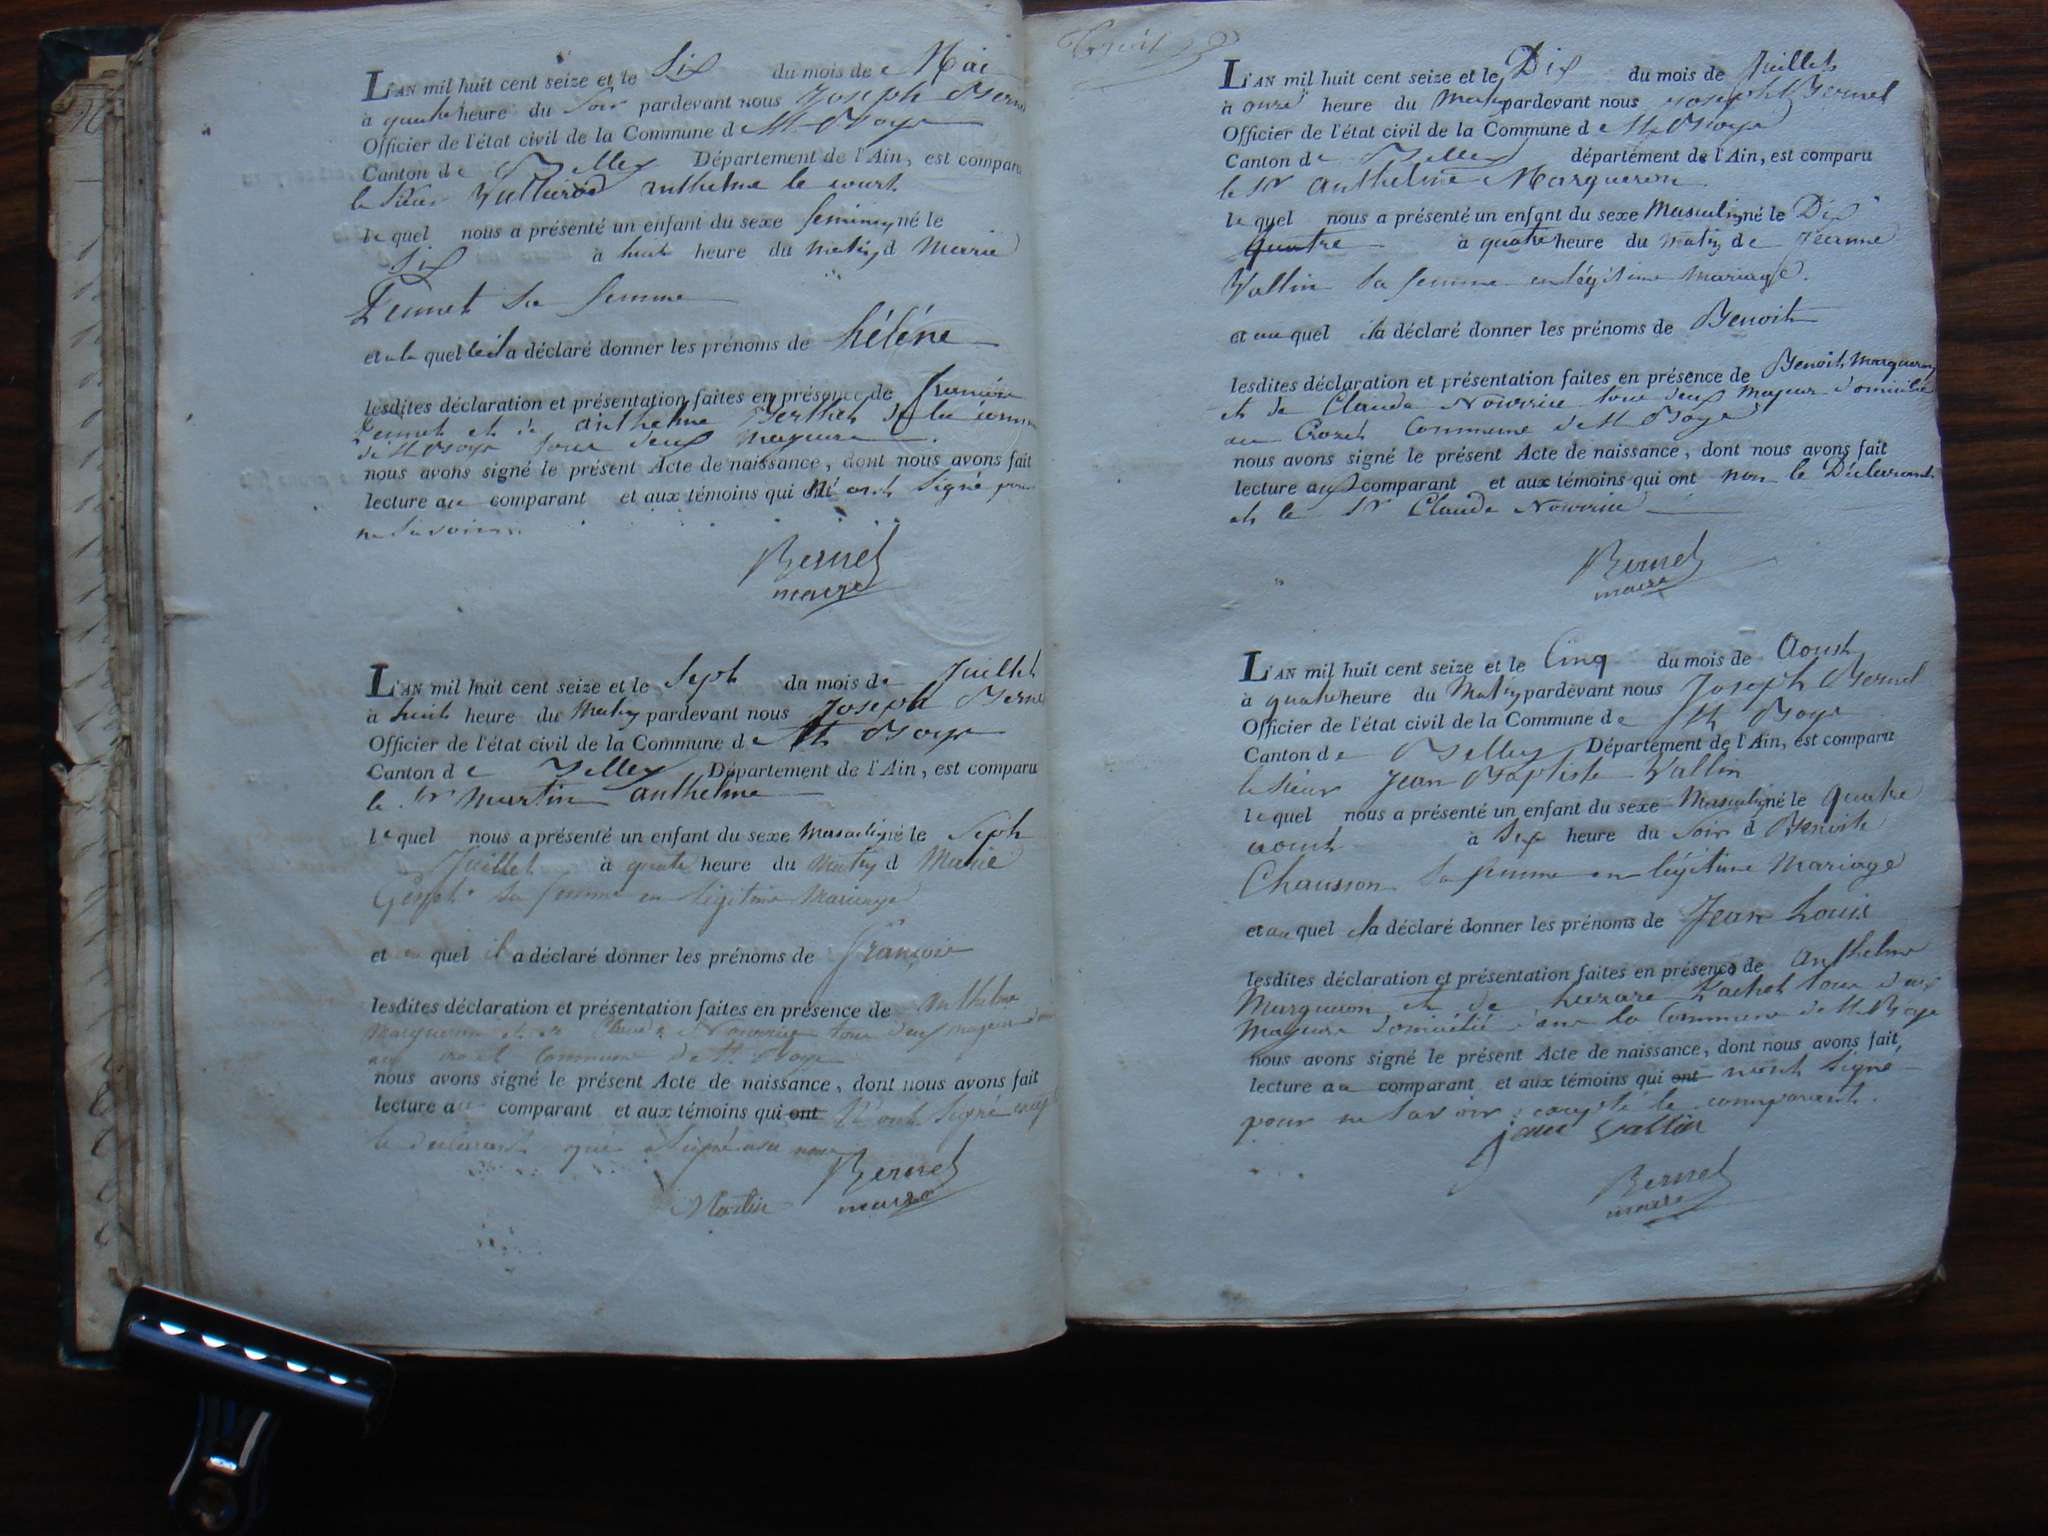 L'AN mil huit cent seize et le Six du mois de Mai
à quatre heure du Soir pardevant nous Joseph Bernel
Officier de l'état civil de la Commune de St Boys
Canton de Belley Département de l'Ain, est comparu
le Sieur anthelme le court
le quel nous a présenté un enfant du sexe feminin né le
Six à huit heure du matin d Marie
Pennet Sa femme
et a la quelle il a déclaré donner les prénoms de héléne
lesdites déclaration et présentation faites en présence de francois
Pennet et de anthelme Berthet de la
de St Boys tous deux majeurs
nous avons signé le présent Acte de naissance, dont nous avons fait
lecture au comparant et aux témoins qui ont n'ont signé pour
ne Savoir
Bernel
maire
L'AN mil huit cent seize et le Sept du mois de Juillet
à huit heure du Matin pardevant nous Joseph Bernel
Officier de l'état civil de la Commune de St Boys
Canton de Belley Département de l'Ain, est comparu
le Sr Martin anthelme
le quel nous a présenté un enfant du sexe Masculin né le Sept
Juillet à quatre heure du Matin d Marie
Sa femme en légitime Mariage
et au quel il a déclaré donner les prénoms de francois
lesdites déclaration et présentation faites en présence de Anthelme
Marqueron et de Claude Nourrice tous deux majeurs
au Crozet Commune de St Boys
nous avons signé le présent Acte de naissance, dont nous avons fait
lecture au comparant et aux témoins qui ont N'ont Signé
le declarant qui a Signé avec nous
Martin Bernel
maire
Benoit
L'AN mil huit cent seize et le Dix du mois de Juillet
à onze heure du Matin pardevant nous Joseph Bernel
Officier de l'état civil de la Commune de St Boys
Canton de Belley département de l'Ain, est comparu
le Sr anthelme Marqueron
le quel nous a présenté un enfant du sexe Masculin né le Dix
quatre à quatre heure du matin de Jeanne
Vallin Sa femme en légitime mariage.
et au quel il a déclaré donner les prénoms de Benoit
lesdites déclaration et présentation faites en présence de Benoit Marqueron
et de Claude Nourrice tous deux majeurs domiciliés
au Crozet Commune de St Boys
nous avons signé le présent Acte de naissance, dont nous avons fait
lecture aux comparant et aux témoins qui ont non le Déclarant
et le Sr Claude Nourrice
Bernel
maire
L'AN mil huit cent seize et le Cinq du mois de Aoust
à quatre heure du Matin pardevant nous Joseph Bernel
Officier de l'état civil de la Commune de St Boys
Canton de Belley Département de l'Ain, est comparu
le Sieur Jean Baptiste Vallin
le quel nous a présenté un enfant du sexe Masculin né le quatre
aoust à Six heure du Soir d Benoite
Chausson Sa femme en légitime Mariage
et au quel il a déclaré donner les prénoms de Jean Louis
lesdites déclaration et présentation faites en présence de Anthelme
Marqueron et de Lazare tous deux
Majeurs domiciliés dans la Commune de St Boys
nous avons signé le présent Acte de naissance, dont nous avons fait
lecture au comparant et aux témoins qui ont n'ont Signé
pour ne Savoir excepté le comparant.
jean vallin
Bernel
maire